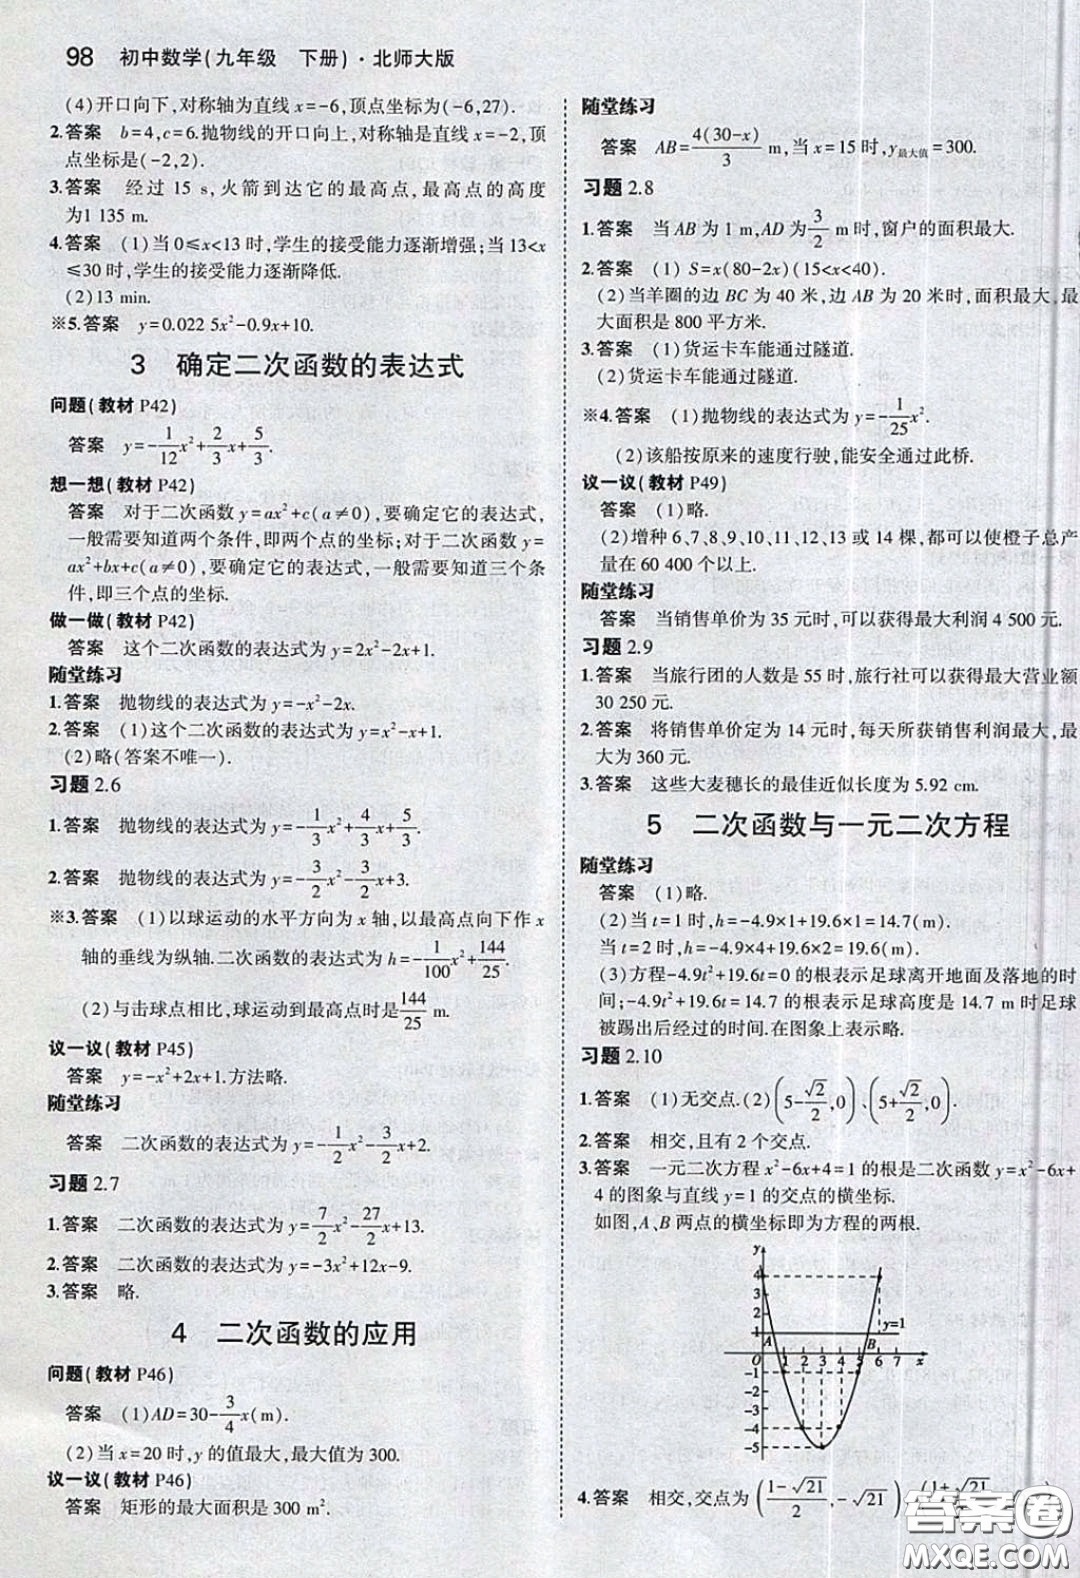 98 初中数学(九年级 下册)·北师大版
(4)开口向下,对称轴为直线x=-6,顶点坐标为(-6,27).
2.答案 b=4,c=6.抛物线的开口向上,对称轴是直线x=-2,顶
点坐标是(-2,2).
3.答案 经过 15 s,火箭到达它的最高点,最高点的高度
为1 135 m.
4.答案 (1)当0≤x<13时,学生的接受能力逐渐增强;当13<x
≤30时,学生的接受能力逐渐降低.
(2)13 min.
※5.答案 y=0.022 5x²-0.9x+10.
3 确定二次函数的表达式
问题(教材 P42)
答案 y=-1/12x²+2/3x+5/3.
想一想(教材 P42)
答案 对于二次函数y=ax²+c(a≠0),要确定它的表达式,
一般需要知道两个条件,即两个点的坐标;对于二次函数y=
ax²+bx+c(a≠0),要确定它的表达式,一般需要知道三个条
件,即三个点的坐标.
做一做(教材 P42)
答案 这个二次函数的表达式为y=2x²-2x+1.
随堂练习
1.答案 抛物线的表达式为y=-x²-2x.
2.答案 (1)这个二次函数的表达式为y=x²-x+1.
(2)略(答案不唯一).
习题2.6
1.答案 抛物线的表达式为y=-1/3x²+4/3x+5/3.
2.答案 抛物线的表达式为y=-3/2x²-3/2x+3.
※3.答案 (1)以球运动的水平方向为x轴,以最高点向下作x
轴的垂线为纵轴.二次函数的表达式为h=-1/100x²+144/25.
(2)与击球点相比,球运动到最高点时是144/25 m.
议一议(教材 P45)
答案 y=-x²+2x+1.方法略.
随堂练习
答案 二次函数的表达式为y=-1/2x²-3/2x+2.
习题2.7
1.答案 二次函数的表达式为y=7/2x²-27/2x+13.
2.答案 二次函数的表达式为y=-3x²+12x-9.
3.答案 略.
4 二次函数的应用
问题(教材 P46)
答案 (1)AD=30-3/4x(m).
(2)当x=20时,y的值最大,最大值为300.
议一议(教材 P46)
答案 矩形的最大面积是300 m².
随堂练习
答案 AB=4(30-x)/3 m,当x=15时,y最大值=300.
习题2.8
1.答案 当AB为1 m,AD为3/2 m时,窗户的面积最大.
2.答案 (1) S=x(80-2x)(15<x<40).
(2)当羊圈的边BC为40米,边AB为20米时,面积最大,最
大面积是800平方米.
3.答案 (1)货运卡车能通过隧道.
(2)货运卡车能通过隧道.
※4.答案 (1)抛物线的表达式为y=-1/25x².
(2)该船按原来的速度行驶,能安全通过此桥.
议一议(教材 P49)
答案 (1)略.
(2)增种6、7、8、9、10、11、12、13或14棵,都可以使橙子总产
量在60 400个以上.
随堂练习
答案 当销售单价为35元时,可以获得最大利润4 500元.
习题2.9
1.答案 当旅行团的人数是55时,旅行社可以获得最大营业额
30 250元.
2.答案 将销售单价定为14元时,每天所获销售利润最大,最
大为360元.
3.答案 这些大麦穗长的最佳近似长度为5.92 cm.
5 二次函数与一元二次方程
随堂练习
答案 (1)略.
(2)当t=1时,h=-4.9×1+19.6×1=14.7(m).
当t=2时,h=-4.9×4+19.6×2=19.6(m).
(3)方程-4.9t²+19.6t=0的根表示足球离开地面及落地的时
间;-4.9t²+19.6t=14.7的根表示足球高度是14.7 m时足球
被踢出后经过的时间.在图象上表示略.
习题2.10
1.答案 (1)无交点.(2)(5-√2/2,0)、(5+√2/2,0).
2.答案 相交,且有2个交点.
3.答案 一元二次方程x²-6x+4=1的根是二次函数y=x²-6x+
4的图象与直线y=1的交点的横坐标.
如图,A、B两点的横坐标即为方程的两根.
y
4
3
2
1
A B y=1
0 1 2 3 4 5 6 7 x
-1
-2
-3
-4
-5
4.答案 相交,交点为((1-√21)/2,-√21)
答案圈
MXQE.COM